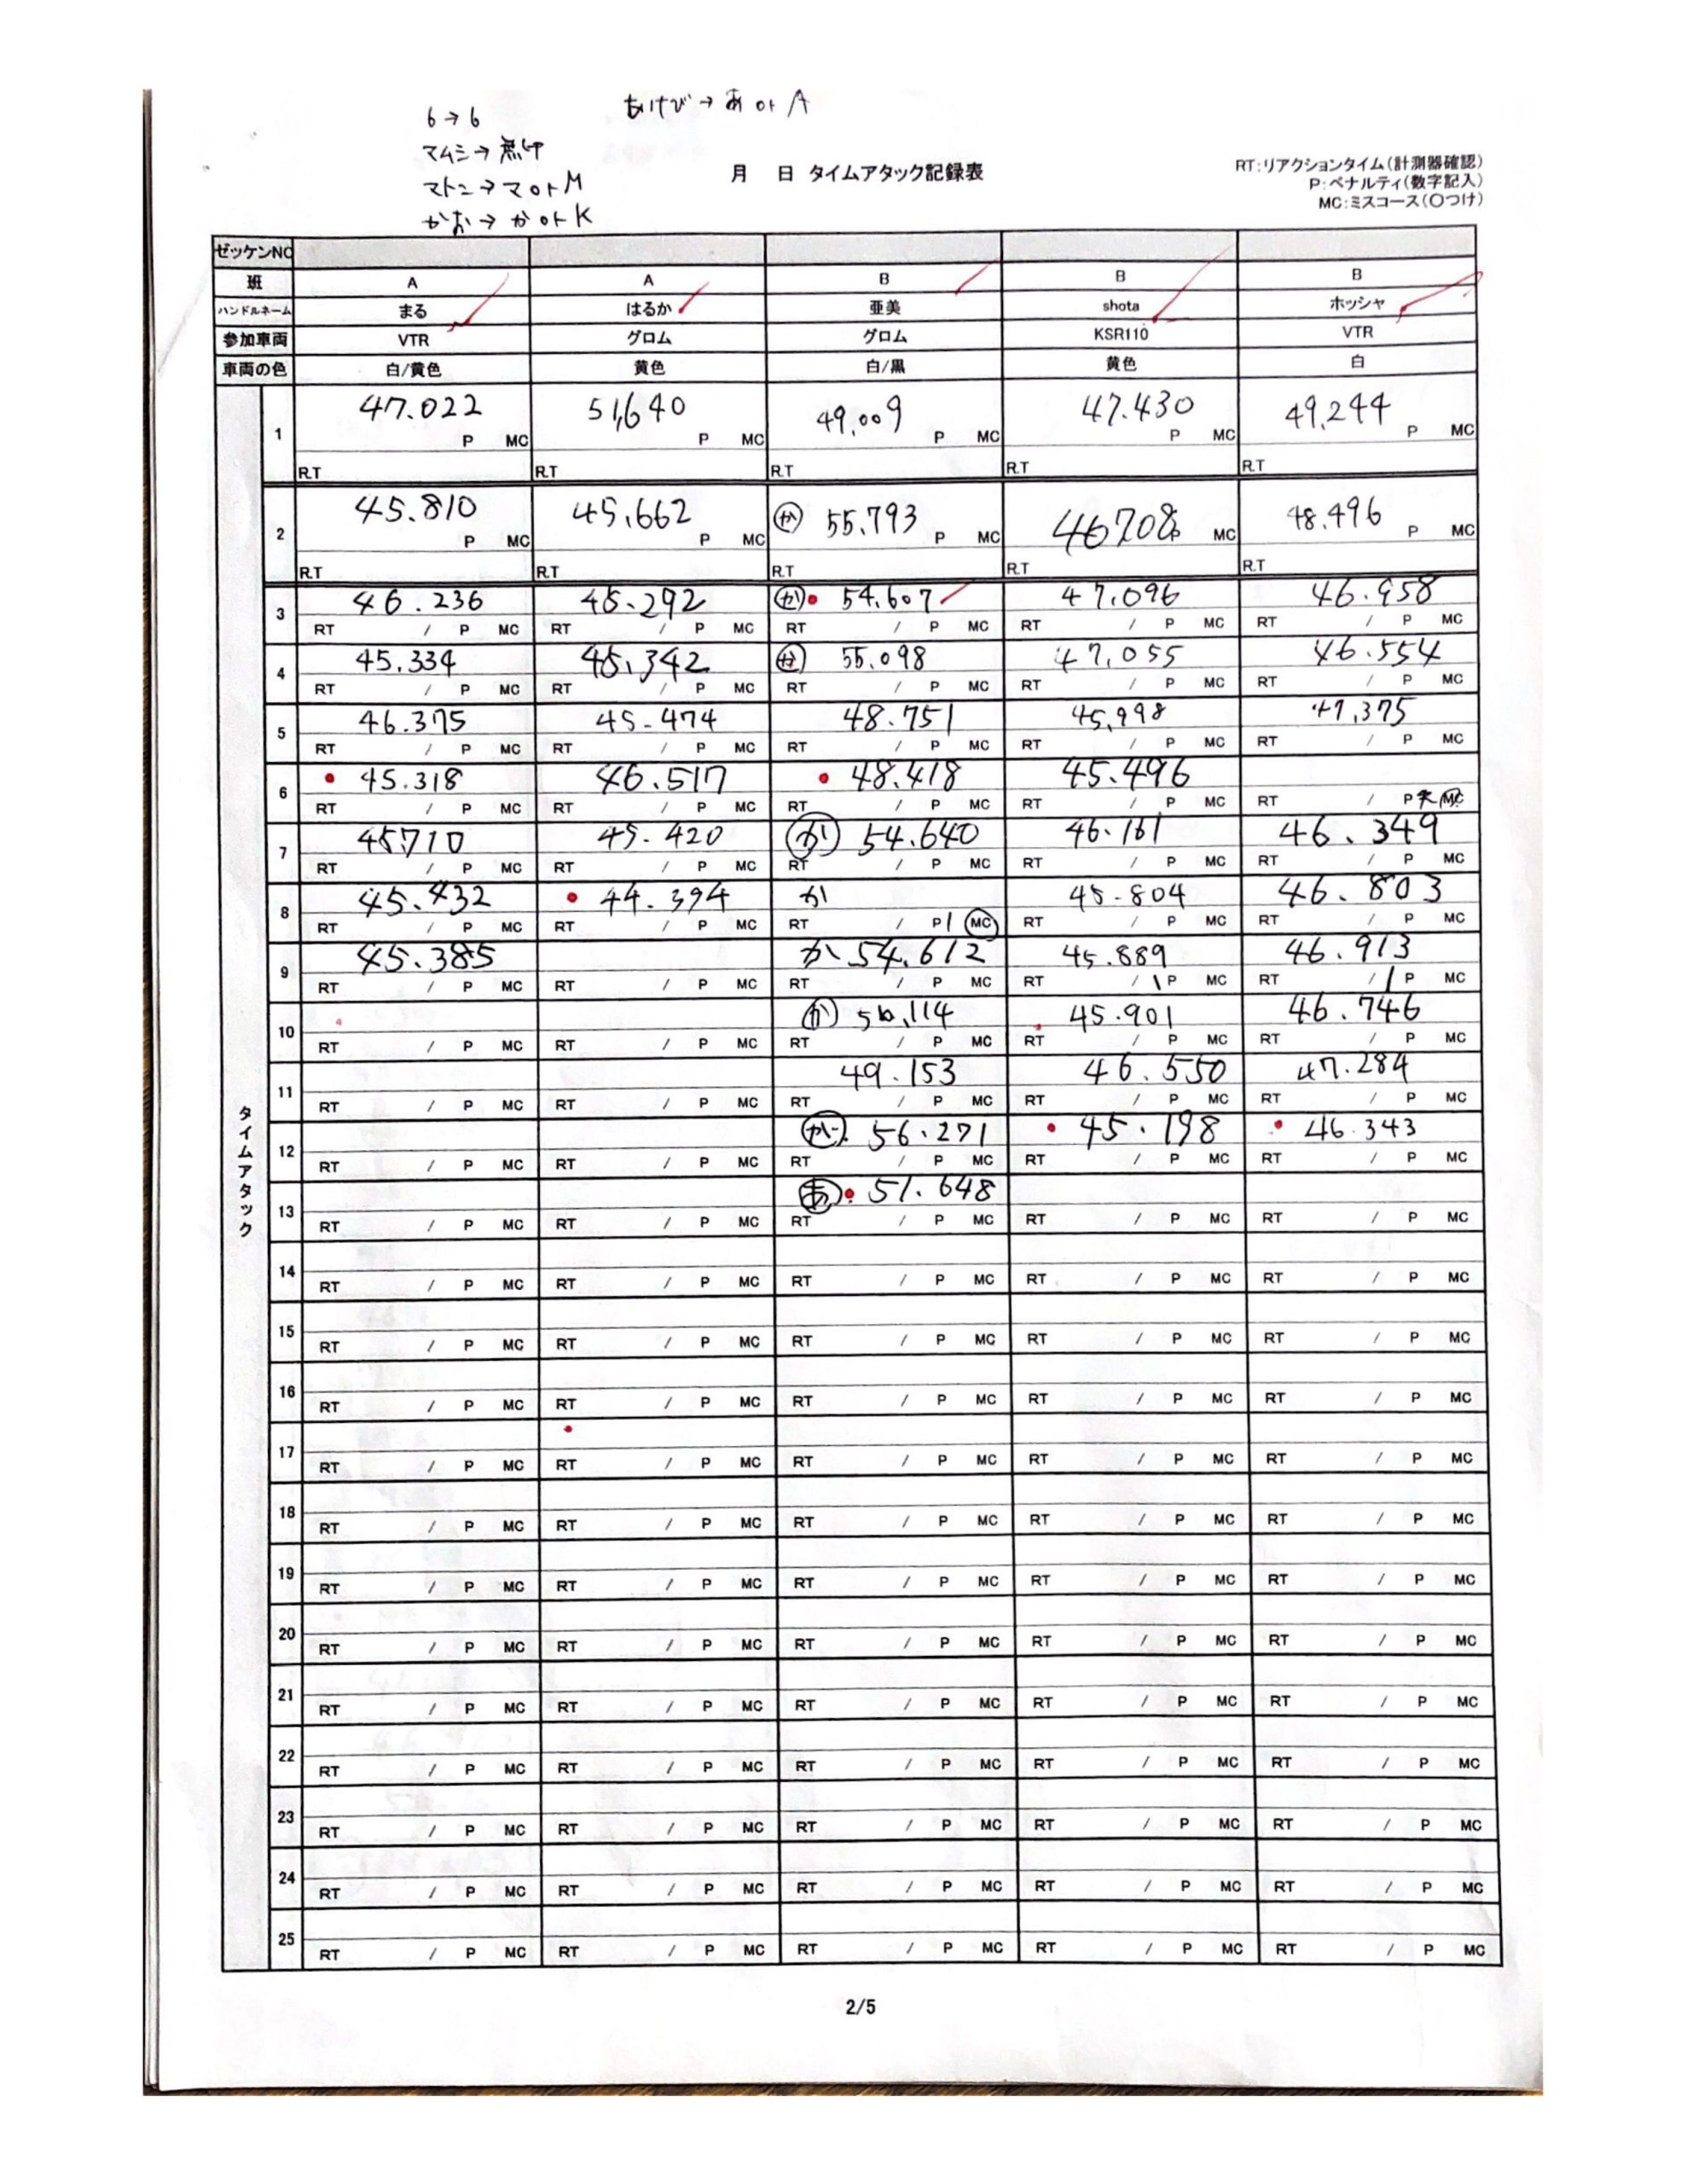 6→6
あけび→あ or A
マムシ→無印
マトン→マ or M
かお→か or K
月 日 タイムアタック記録表
RT:リアクションタイム(計測器確認)
P:ペナルティ(数字記入)
MC:ミスコース(〇つけ)
ゼッケンNO
班 A A B B B
ハンドルネーム まる はるか 亜美 shota ホッシャ
参加車両 VTR グロム グロム KSR110 VTR
車両の色 白/黄色 黄色 白/黒 黄色 白
タイムアタック
1 47.022 51,640 49.009 47.430 49,244
P MC P MC P MC P MC P MC
R.T R.T R.T R.T R.T
2 45.810 45.662 か 55.793 46708 48.496
P MC P MC P MC P MC P MC
R.T R.T R.T R.T R.T
3 46.236 45.292 か 54.607 47.096 46.958
RT / P MC RT / P MC RT / P MC RT / P MC RT / P MC
4 45.334 45.342 か 55.098 47.055 46.554
RT / P MC RT / P MC RT / P MC RT / P MC RT / P MC
5 46.375 45.474 48.751 45.998 47.375
RT / P MC RT / P MC RT / P MC RT / P MC RT / P MC
6 45.318 46.517 48.418 45.496
RT / P MC RT / P MC RT / P MC RT / P MC RT / P MC
7 45.710 45.420 か 54.640 46.161 46.349
RT / P MC RT / P MC RT / P MC RT / P MC RT / P MC
8 45.432 44.394 か 45.804 46.803
RT / P MC RT / P MC RT / P1 MC RT / P MC RT / P MC
9 45.385 か 54.612 45.889 46.913
RT / P MC RT / P MC RT / P MC RT / \ P MC RT / / P MC
10 か 56.114 45.901 46.746
RT / P MC RT / P MC RT / P MC RT / P MC RT / P MC
11 49.153 46.550 47.284
RT / P MC RT / P MC RT / P MC RT / P MC RT / P MC
12 か 56.271 45.198 46.343
RT / P MC RT / P MC RT / P MC RT / P MC RT / P MC
13 あ 51.648
RT / P MC RT / P MC RT / P MC RT / P MC RT / P MC
14
RT / P MC RT / P MC RT / P MC RT / P MC RT / P MC
15
RT / P MC RT / P MC RT / P MC RT / P MC RT / P MC
16
RT / P MC RT / P MC RT / P MC RT / P MC RT / P MC
17
RT / P MC RT / P MC RT / P MC RT / P MC RT / P MC
18
RT / P MC RT / P MC RT / P MC RT / P MC RT / P MC
19
RT / P MC RT / P MC RT / P MC RT / P MC RT / P MC
20
RT / P MC RT / P MC RT / P MC RT / P MC RT / P MC
21
RT / P MC RT / P MC RT / P MC RT / P MC RT / P MC
22
RT / P MC RT / P MC RT / P MC RT / P MC RT / P MC
23
RT / P MC RT / P MC RT / P MC RT / P MC RT / P MC
24
RT / P MC RT / P MC RT / P MC RT / P MC RT / P MC
25
RT / P MC RT / P MC RT / P MC RT / P MC RT / P MC
2/5